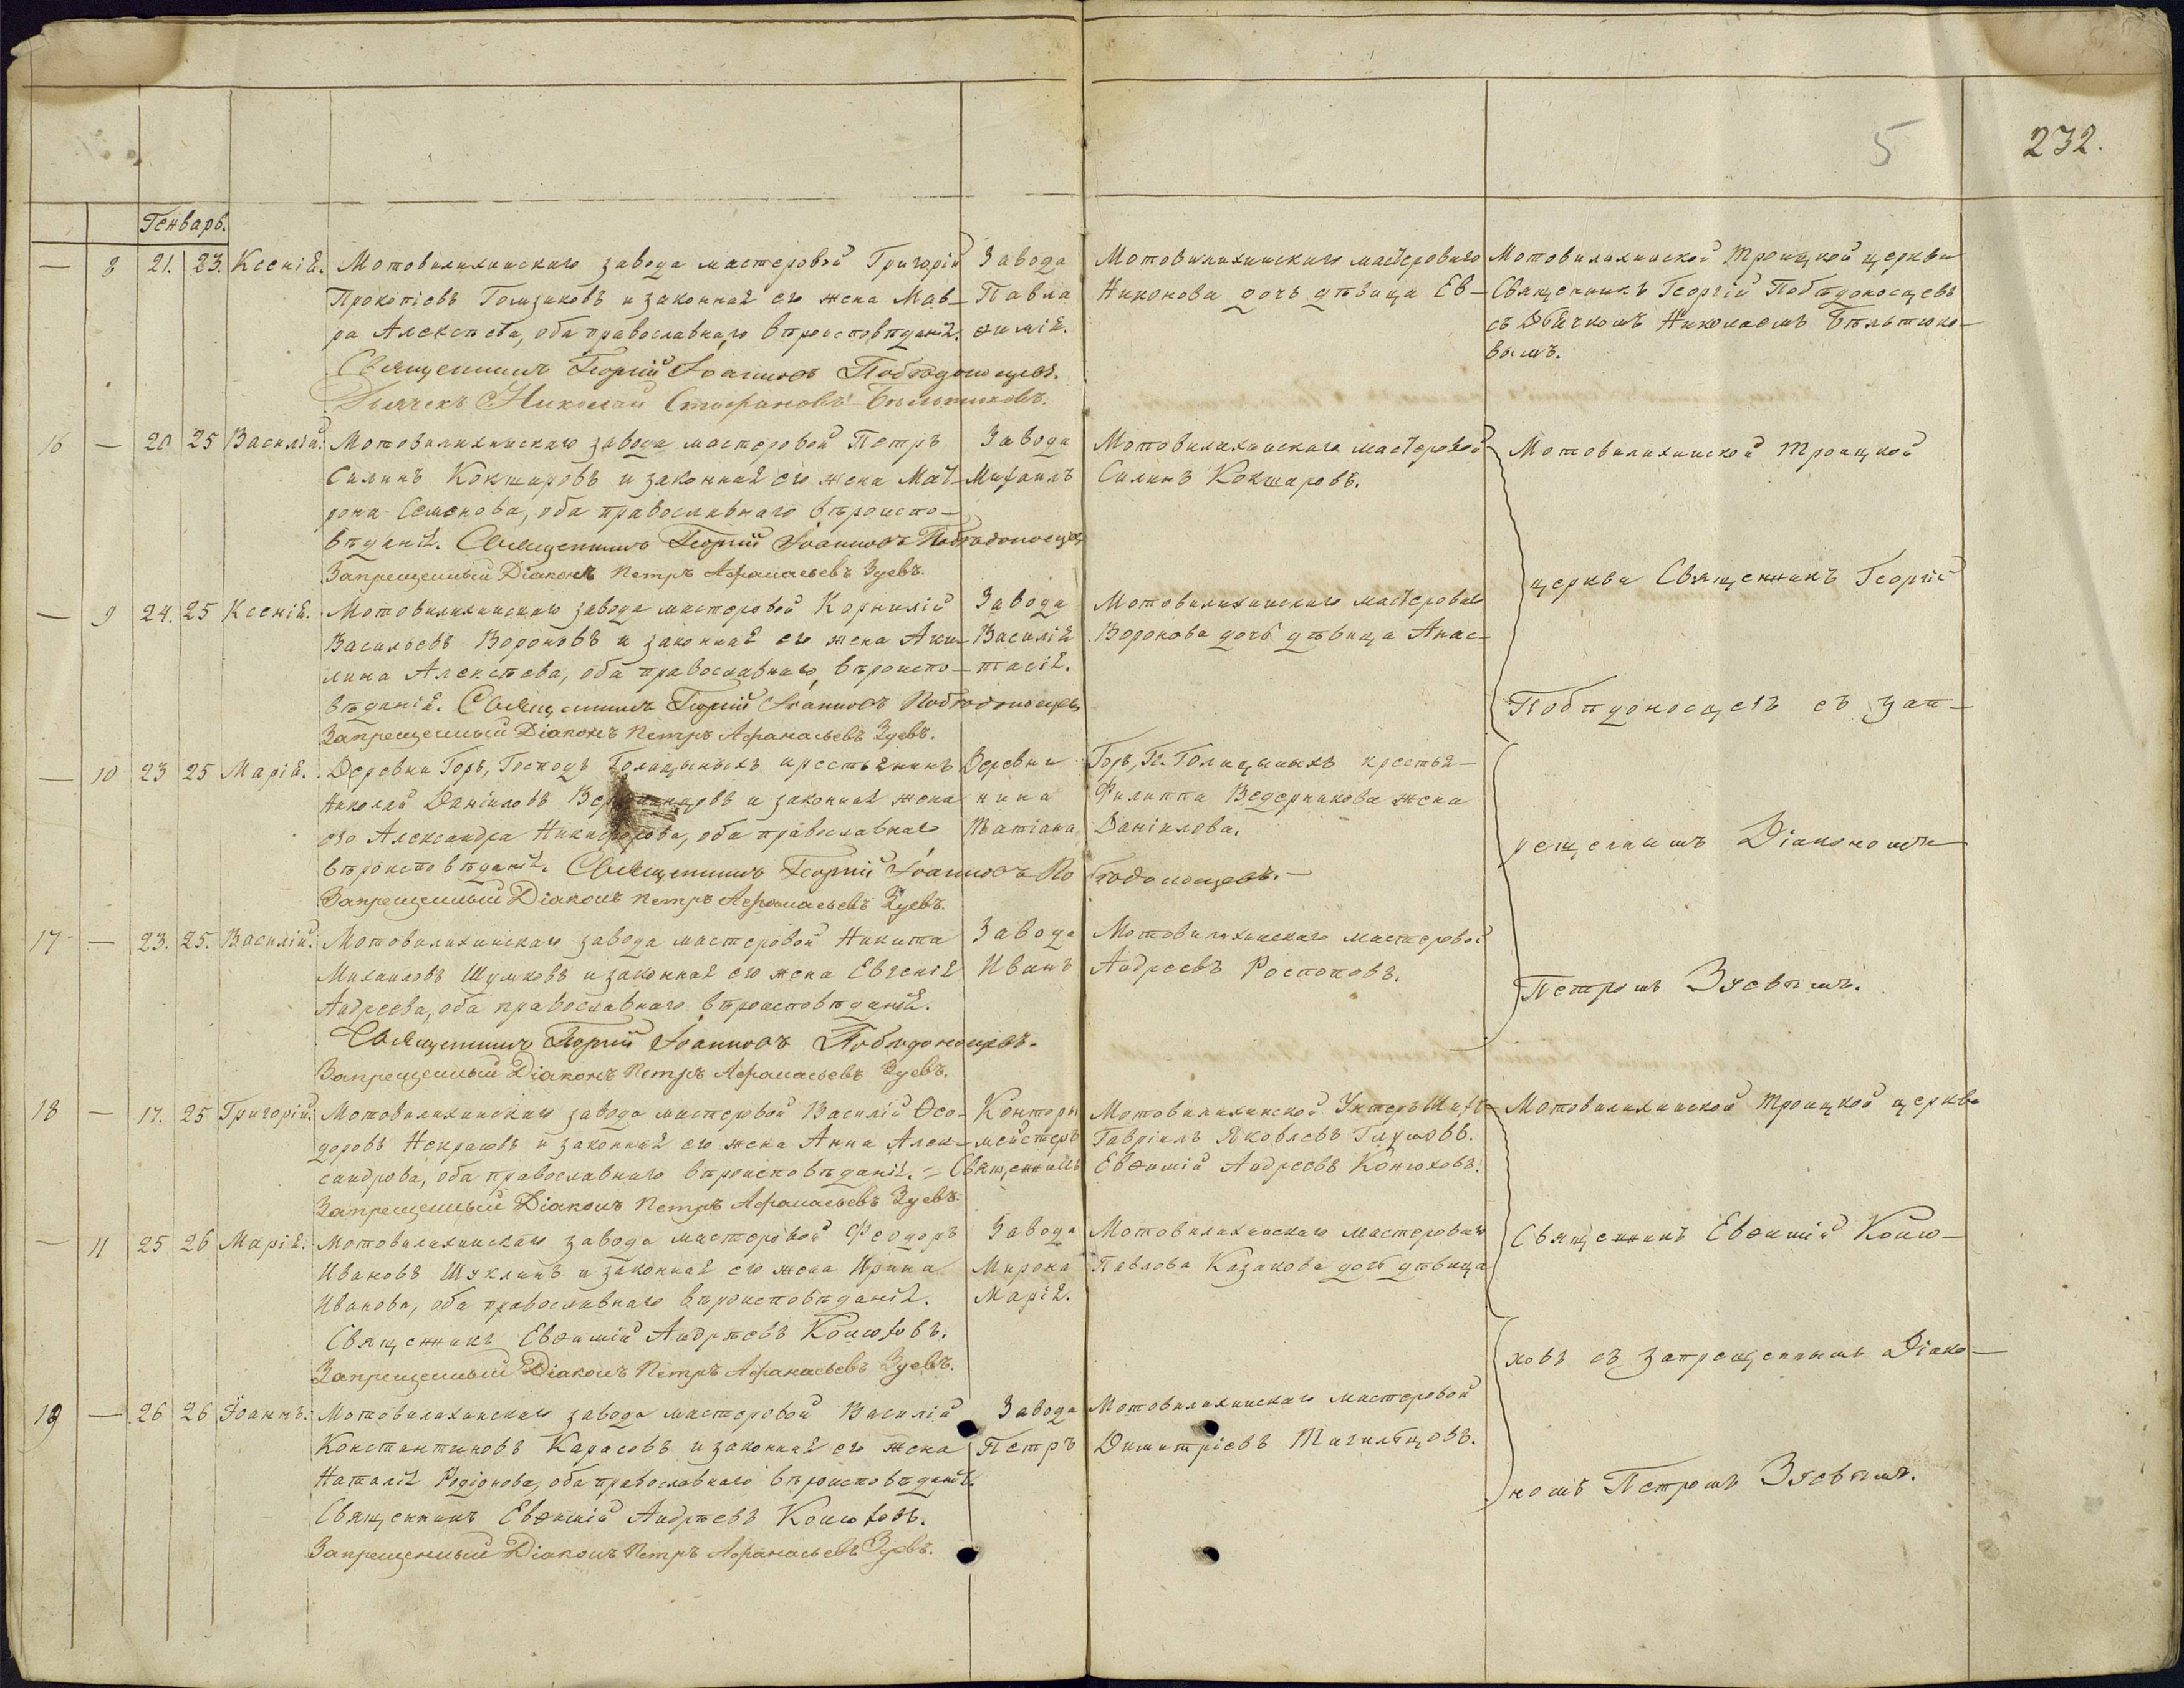 5
232.
Генварь.
— 8 21. 23. Ксенія. Мотовилихинскаго завода мастеровой Григорій Завода Мотовилихинскаго мастероваго Мотовилихинской Троицкой церкви
Прокопіевъ Голзиковъ и законная его жена Мав- Павла Никонова дочь дѣвица Ев- Священникъ Георгій Побѣдоносцевъ
ра Алексѣева, оба православнаго вѣроисповѣданія. ѳимія. съ Дьячкомъ Николаемъ Бѣльтюко-
вымъ.
Священникъ Георгій Іоанновъ Побѣдоносцевъ.
Дьячекъ Николай Стефановъ Бѣльтюковъ.
16 — 20 25 Василій. Мотовилихинскаго завода мастеровой Петръ Завода Мотовилихинскаго мастеровой Мотовилихинской Троицкой
Силинъ Кокшаровъ и законная его жена Мат- Михаилъ Силинъ Кокшаровъ.
рона Семенова, оба православнаго вѣроиспо-
вѣданія. Священникъ Георгій Іоанновъ Побѣдоносцевъ
Запрещенный Діаконъ Петръ Афанасьевъ Зуевъ. церкви Священникъ Георгій
— 9 24. 25 Ксенія. Мотовилихинскаго завода мастеровой Корнилій Завода Мотовилихинскаго мастероваго
Васильевъ Вороновъ и законная его жена Аки- Василія Воронова дочь дѣвица Анас-
лина Алексѣева, оба православнаго вѣроиспо- тасія.
вѣданія. Священникъ Георгій Іоанновъ Побѣдоносцевъ Побѣдоносцевъ съ зап-
Запрещенный Діаконъ Петръ Афанасьевъ Зуевъ.
— 10 23 25 Марія. Деревни Горъ, Господъ Голицыныхъ крестьянинъ Деревни Горъ, Гг. Голицыныхъ крестья-
Николай Даніиловъ и законная жена нина Филиппа Ведерникова жена
его Александра Никифорова, оба православнаго Татіана Даніилова. рещеннымъ Діакономъ
вѣроисповѣданія. Священникъ Георгій Іоанновъ Побѣдоносцевъ.—
Запрещенный Діаконъ Петръ Афанасьевъ Зуевъ.
17 — 23. 25. Василій. Мотовилихинскаго завода мастеровой Никита Завода Мотовилихинскаго мастеровой
Михаиловъ Шумковъ и законная его жена Евгенія Иванъ Андреевъ Роспоповъ. Петромъ Зуевымъ.
Андреева, оба православнаго вѣроисповѣданія.
Священникъ Георгій Іоанновъ Побѣдоносцевъ.
Запрещенный Діаконъ Петръ Афанасьевъ Зуевъ.
18 — 17. 25 Григорій. Мотовилихинскаго завода мастеровой Василій Ѳео- Конторы Мотовилихинской Унтеръ Шихт- Мотовилихинской Троицкой церкви
доровъ Некрасовъ и законная его жена Анна Алек- мейстеръ Гавріилъ Яковлевъ Глушовъ.
сандрова, оба православнаго вѣроисповѣданія. = Священникъ Евѳимій Андреевъ Конюховъ.
Запрещенный Діаконъ Петръ Афанасьевъ Зуевъ.
— 11 25 26 Марія. Мотовилихинскаго завода мастеровой Феодоръ Завода Мотовилихинскаго мастероваго Священникъ Евѳимій Коню-
Ивановъ Шуклинъ и законная его жена Ирина Мирона Павлова Казакова дочь дѣвица
Иванова, оба православнаго вѣроисповѣданія. Марія.
Священникъ Евѳимій Андрѣевъ Конюховъ.
Запрещенный Діаконъ Петръ Афанасьевъ Зуевъ. ховъ съ запрещеннымъ Діако-
19 — 26 26 Іоаннъ. Мотовилихинскаго завода мастеровой Василій Завода Мотовилихинскаго мастеровой
Константиновъ Карасовъ и законная его жена Петръ Димитріевъ Тагильцовъ.
Наталія Родіонова, оба православнаго вѣроисповѣданія. номъ Петромъ Зуевымъ.
Священникъ Евѳимій Андрѣевъ Конюховъ.
Запрещенный Діаконъ Петръ Афанасьевъ Зуевъ.